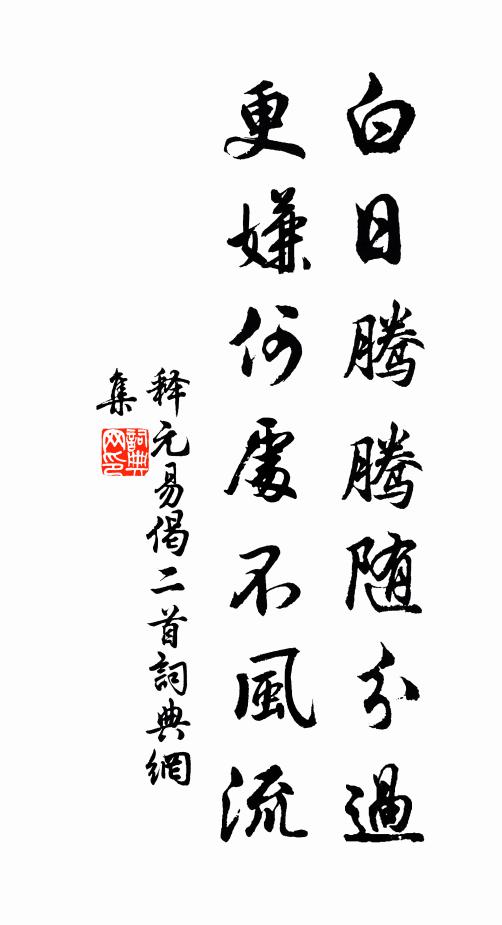 白日騰騰随分過
更嫌何處不風流
释元易偈二首詞典網
集
詞典
网印